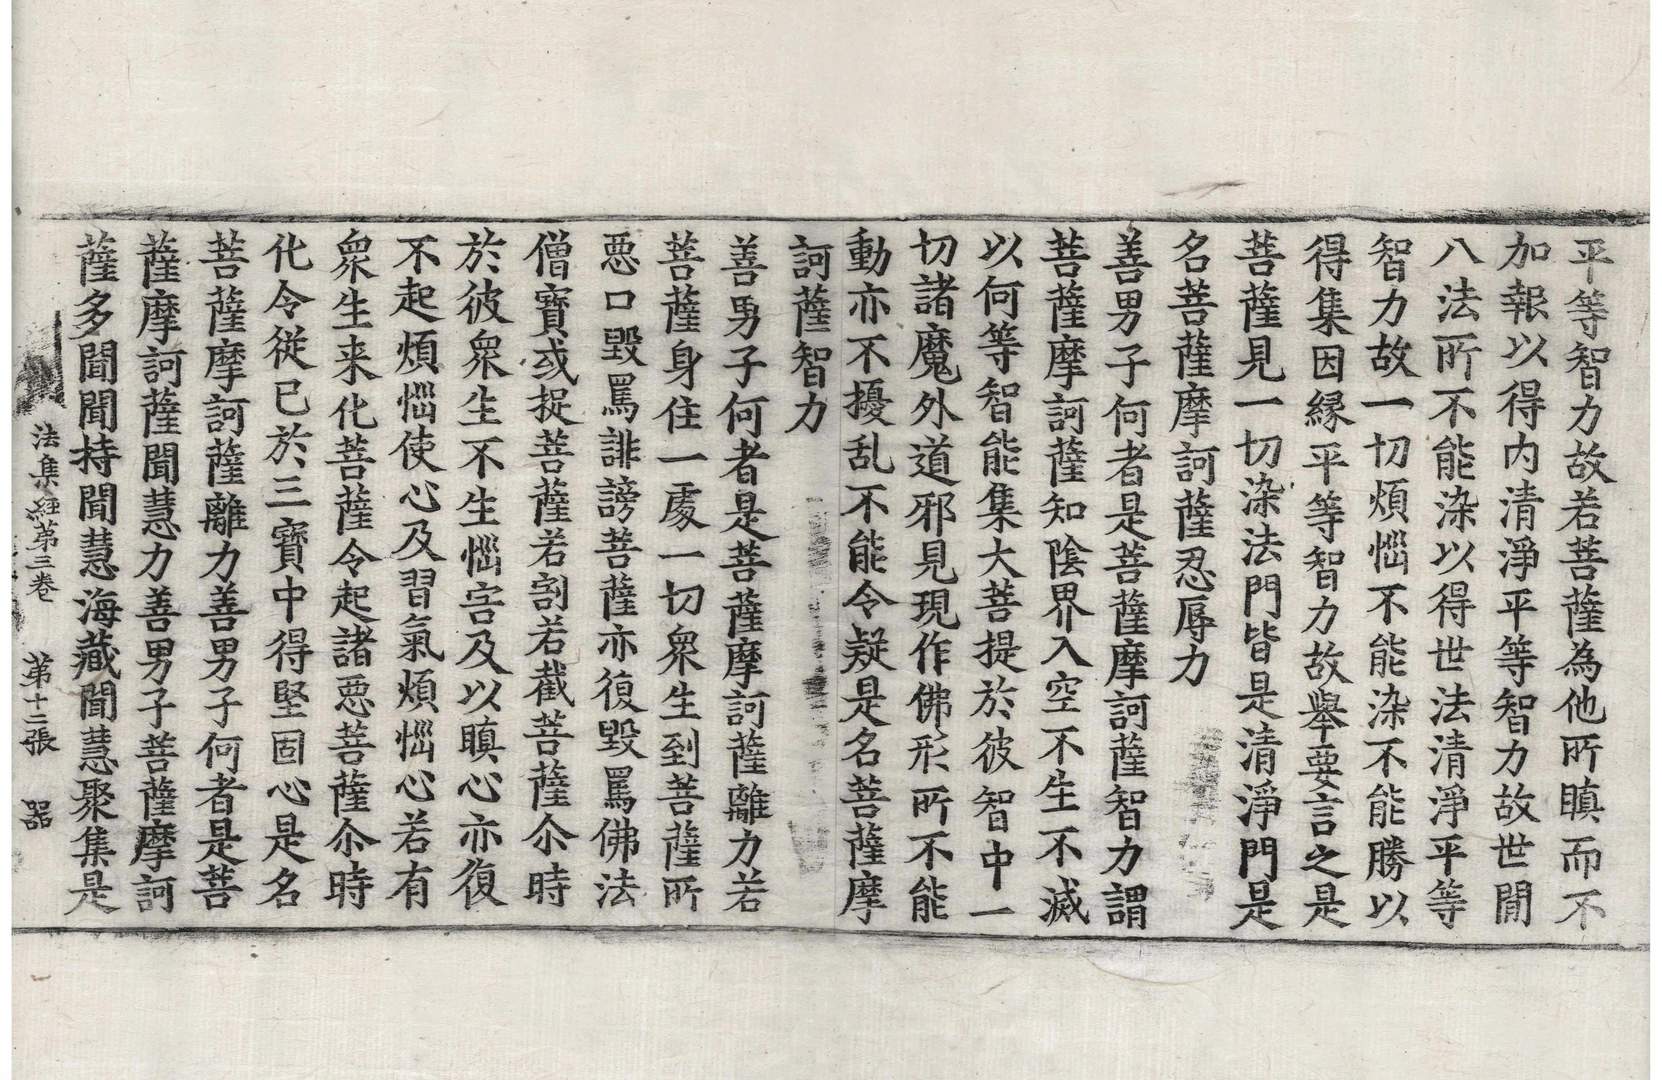 平等智力故若菩薩為他所瞋而不
加報以得内清淨平等智力故世間
八法所不能染以得世法清淨平等
智力故一切煩惱不能染不能勝以
得集因縁平等智力故舉要言之是
菩薩見一切染法門皆是清淨門是
名菩薩摩訶薩忍辱力
善男子何者是菩薩摩訶薩智力謂
菩薩摩訶薩知陰界入空不生不滅
以何等智能集大菩提於彼智中一
切諸魔外道邪見現作佛形所不能
動亦不擾乱不能令疑是名菩薩摩
訶薩智力
善男子何者是菩薩摩訶薩離力若
菩薩身住一處一切衆生到菩薩所
惡口毀罵誹謗菩薩亦復毀罵佛法
僧寶或捉菩薩若割若截菩薩尒時
於彼衆生不生惱害及以瞋心亦復
不起煩惱使心及習氣煩惱心若有
衆生来化菩薩令起諸惡菩薩尒時
化令從已於三寶中得堅固心是名
菩薩摩訶薩離力善男子何者是菩
薩摩訶薩聞慧力善男子菩薩摩訶
薩多聞聞持聞慧海藏聞慧聚集是
法集經第三卷　第十二張　器